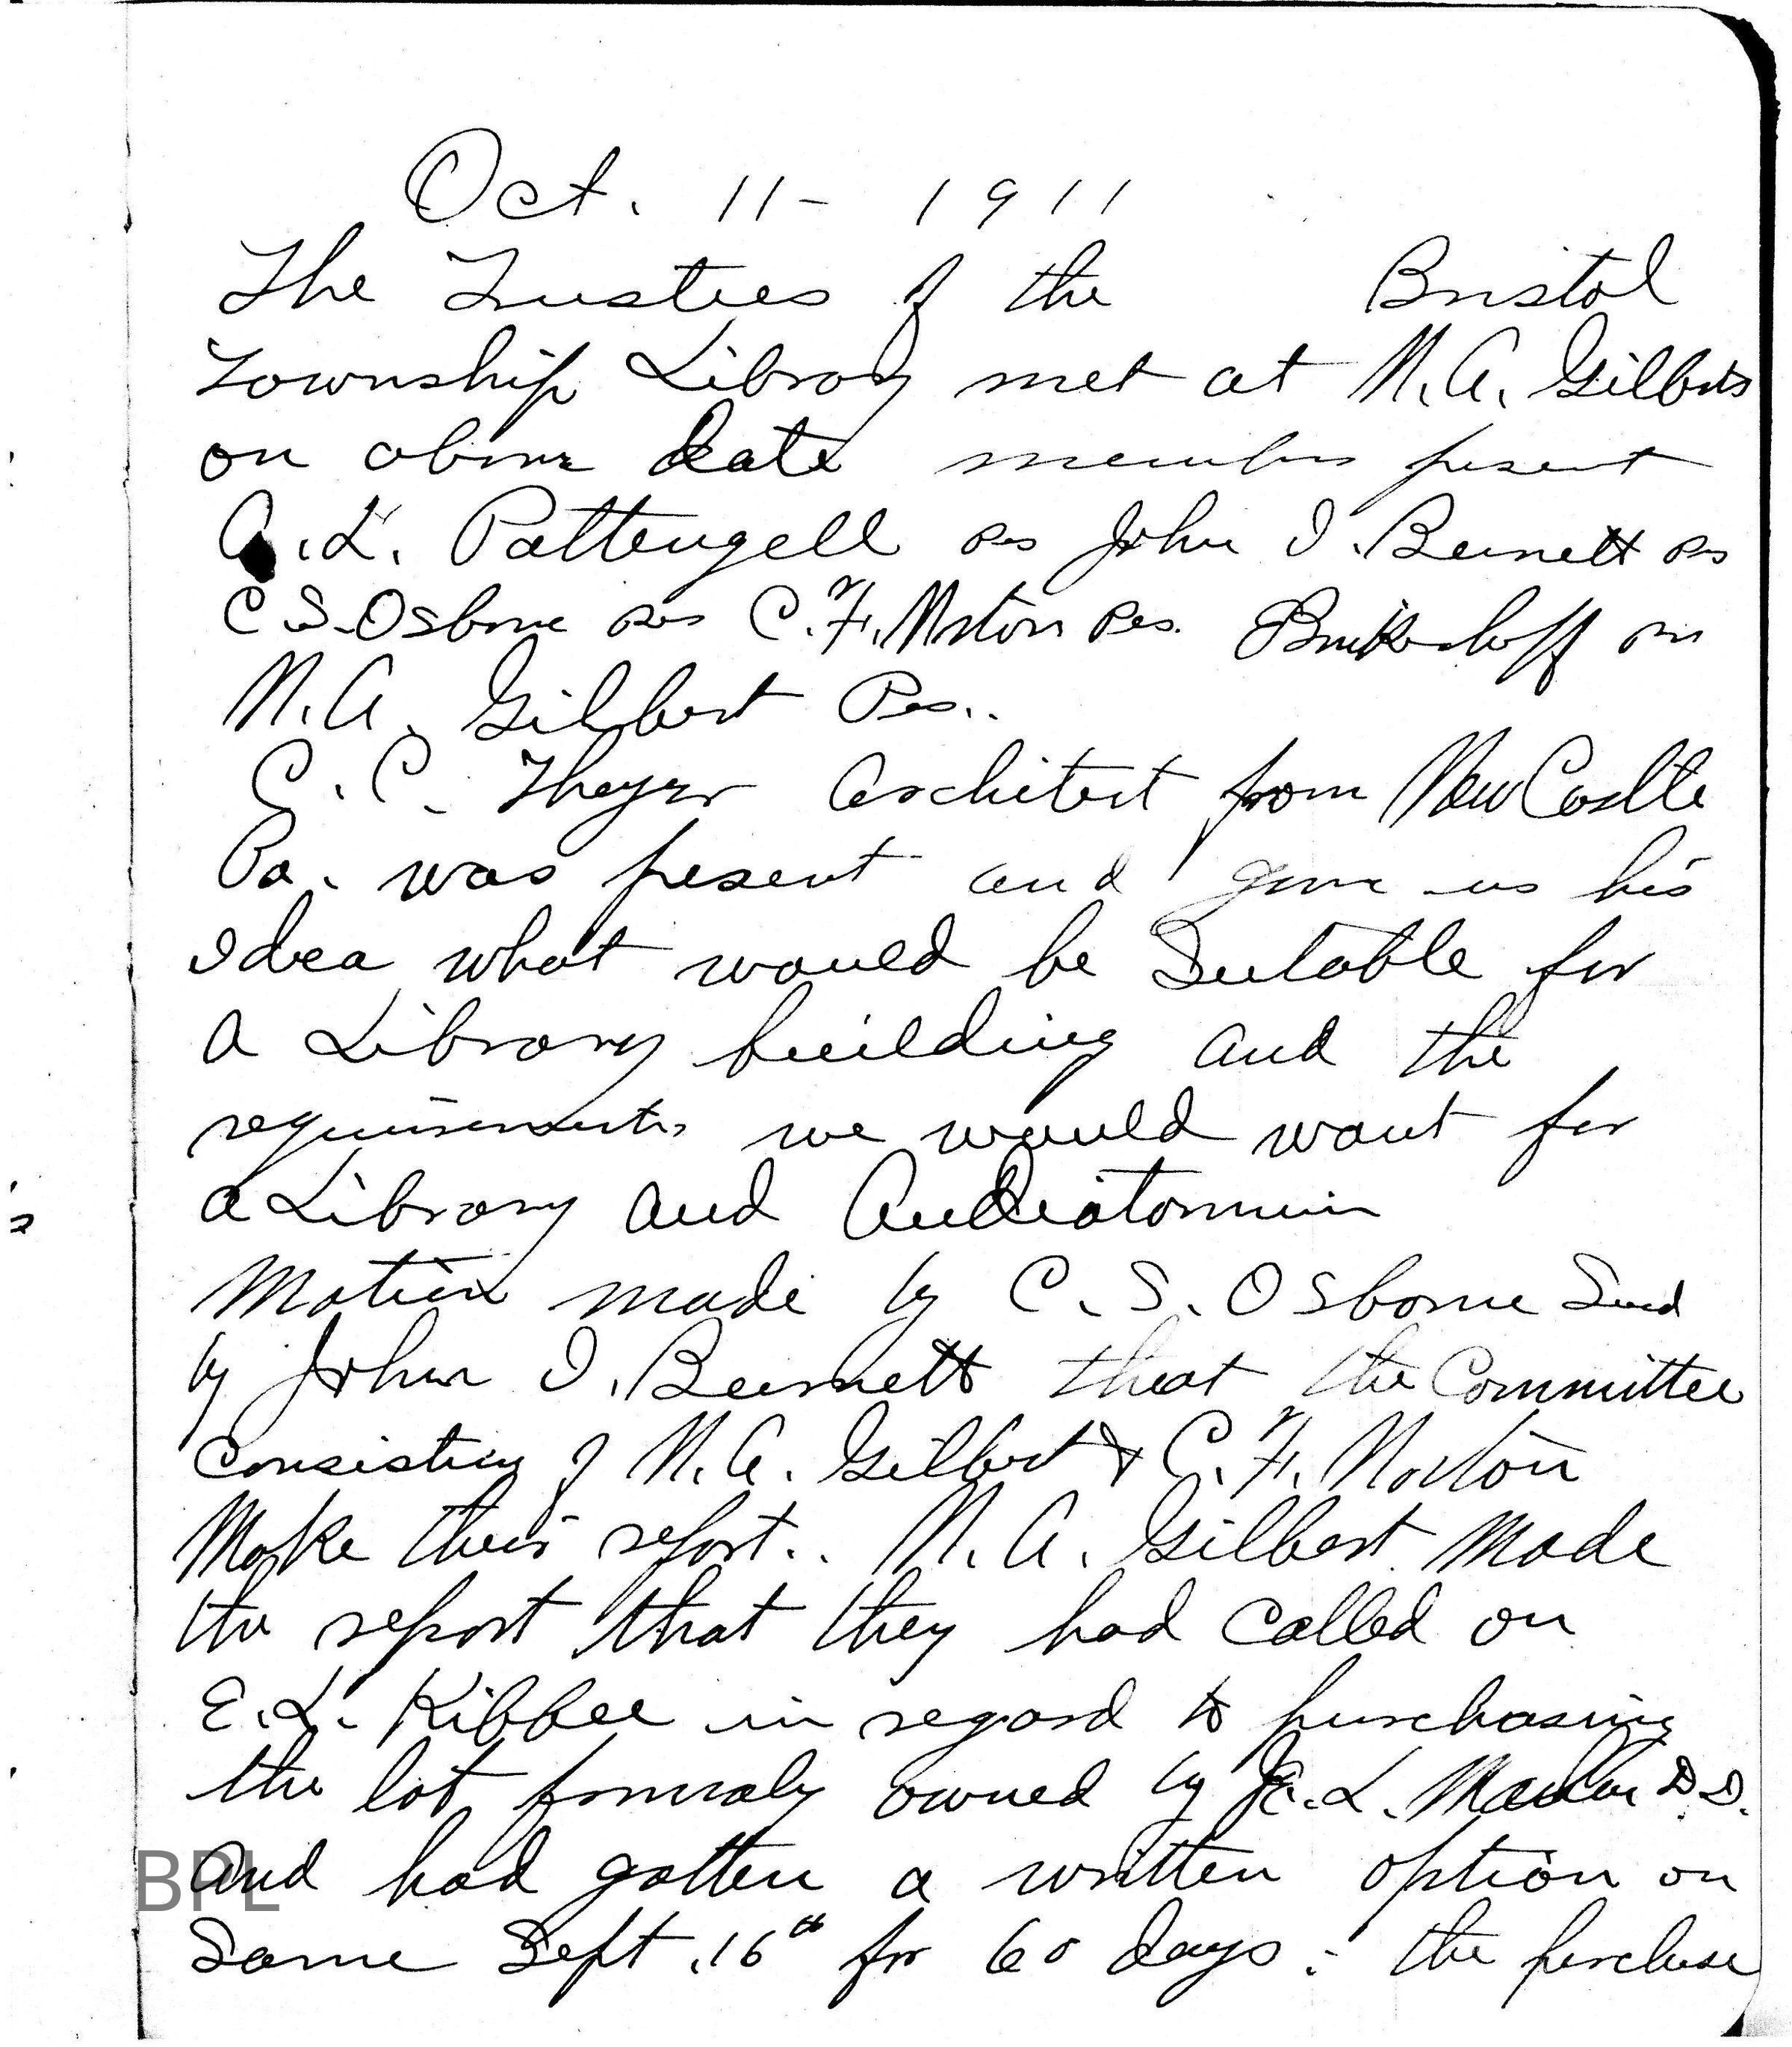 Oct. 11 - 1911
The Trustees of the Bristol
Township Library met at N. A. Gilberts
on above date members present
A. L. Pattengell Pes John I. Bennett Pes
C S. Osborne Pes C. F. Norton Pes. Brinkerhoff Pes
N. A. Gilbert Pes..
C. C. Thayer Architect from New Castle
Pa. was present and gave us his
Idea what would be Sutable for
a Library building and the
requirements we would want for
a Library and Audiatorium
Motion made by C. S. Osborne
by John I. Bennett that the Committee
Consisting of N. A. Gilbert & C. F. Norton
Make their report.. N. A. Gilbert Made
the report that they had Called on
E. L. Kibbee in regard to purchasing
the lot formaly owned by L. D.D.
And had gotten a written option on
Same Sept. 16th for 60 days: the purchase
BPL